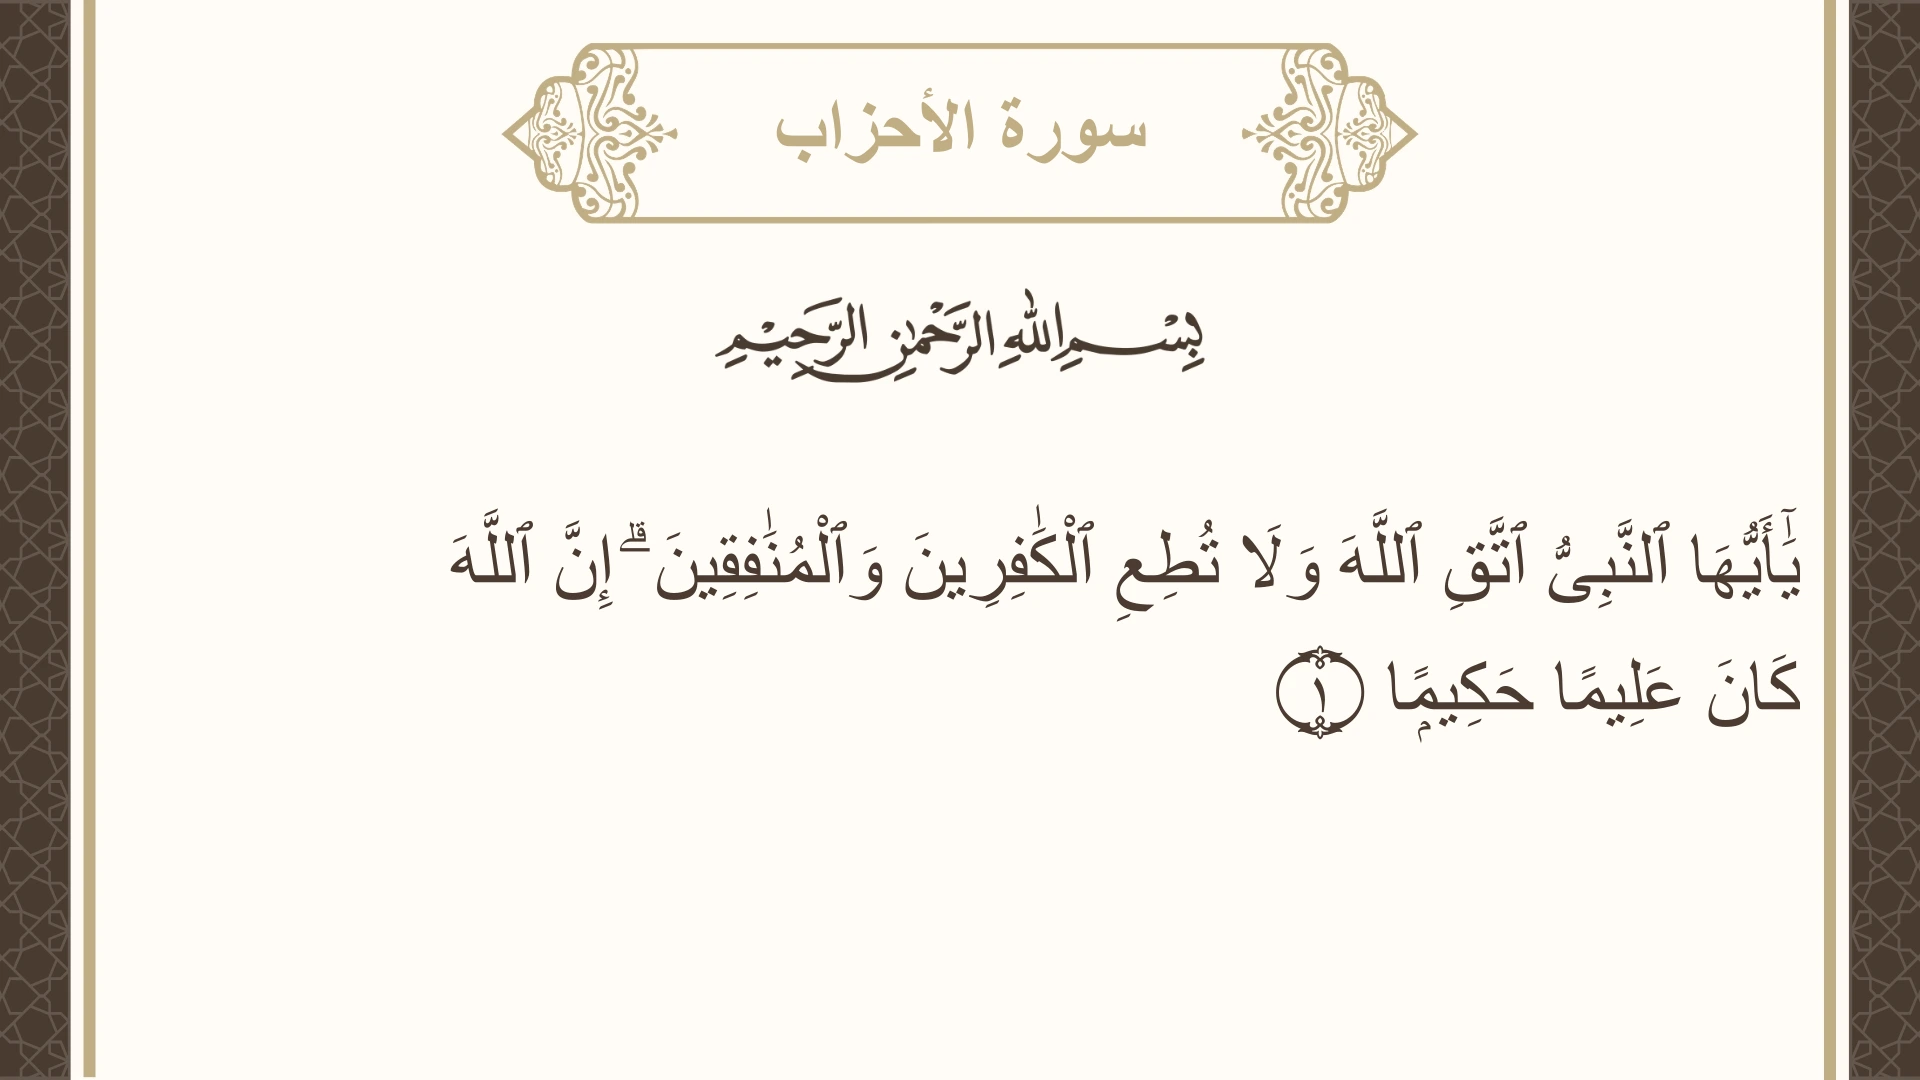 سورة الأحزاب
بِسْمِ اللهِ الرَّحْمٰنِ الرَّحِيْمِ
يَٰٓأَيُّهَا ٱلنَّبِىُّ ٱتَّقِ ٱللَّهَ وَلَا تُطِعِ ٱلْكَٰفِرِينَ وَٱلْمُنَٰفِقِينَ ۗ إِنَّ ٱللَّهَ
كَانَ عَلِيمًا حَكِيمًۭا ۝١